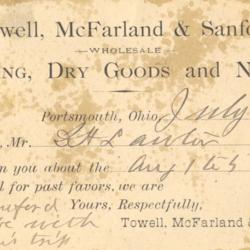 Towell, McFarland & Sanfo
WHOLESALE
ING, DRY GOODS AND N
Portsmouth, Ohio, July
Mr.
n you about the Aug 1 to 5
l for past favors, we are
Yours, Respectfully,
with Towell, McFarland &
is trip